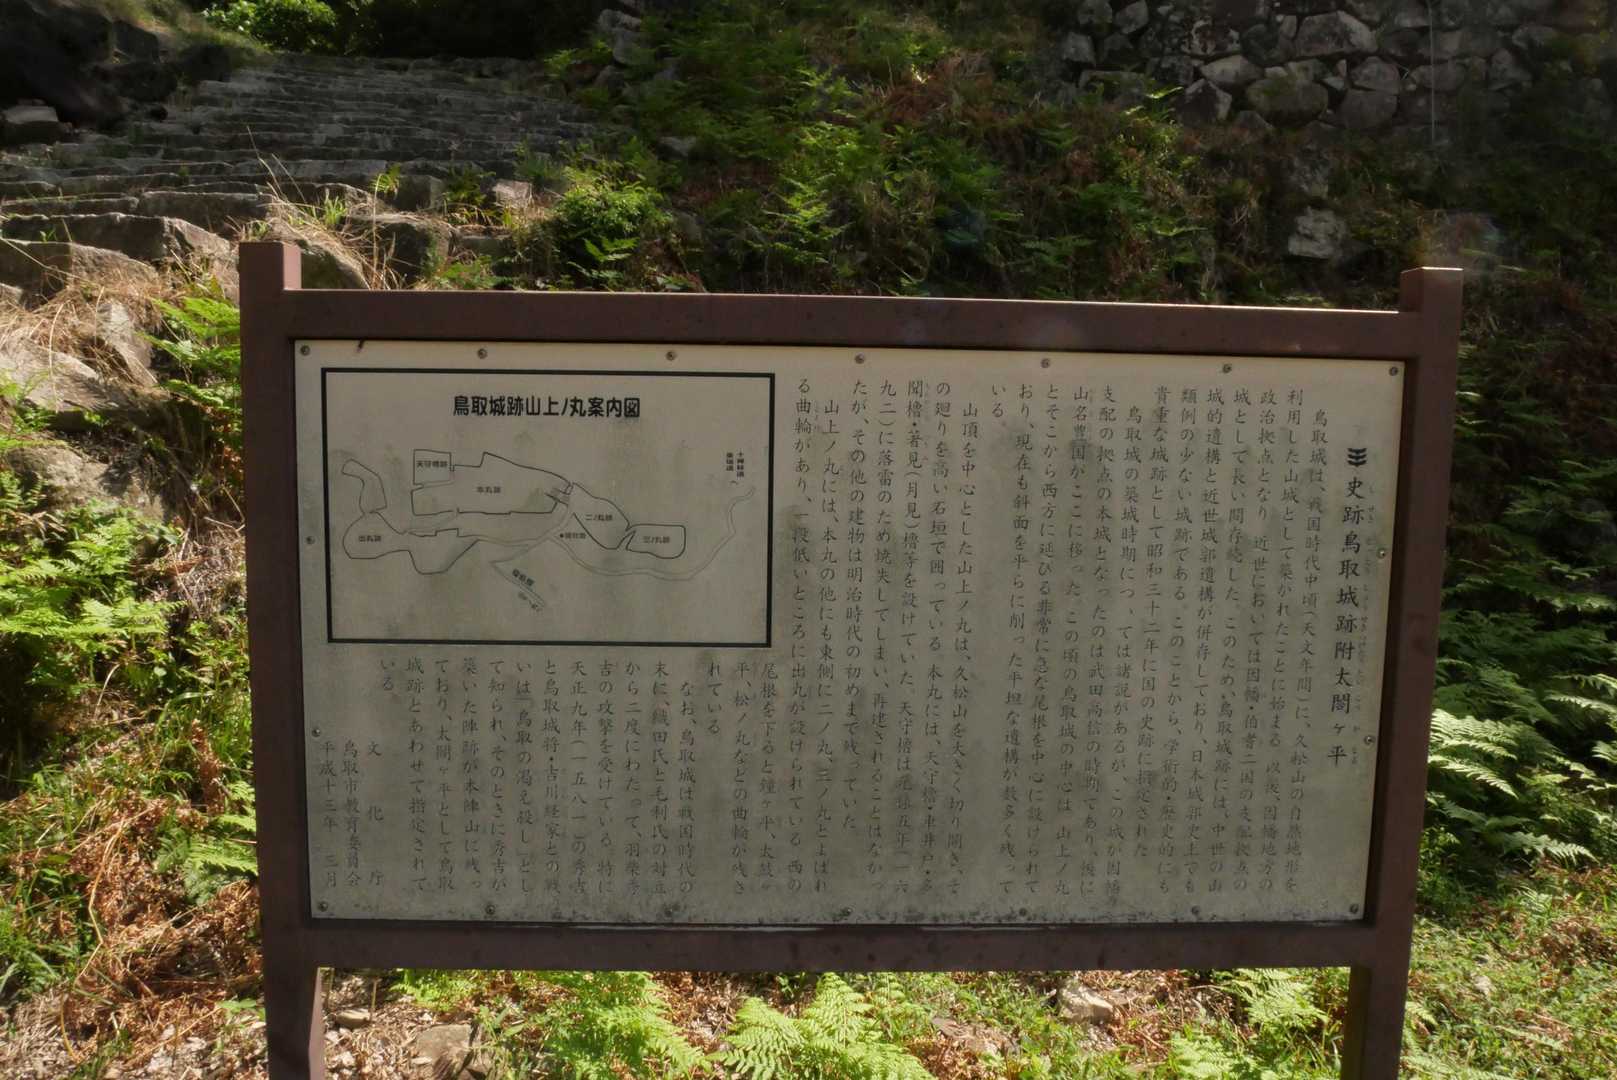 史跡鳥取城跡附太閤ヶ平
鳥取城は、戦国時代中頃(天文年間)に、久松山の自然地形を
利用した山城として築かれたことに始まる 以後、因幡地方の
政治拠点となり 近世においては因幡・伯耆二国の支配拠点の
城として長い間存続した。このため、鳥取城跡には、中世の山
城的遺構と近世城郭遺構が併存しており、日本城郭史上でも
類例の少ない城跡である。このことから、学術的・歴史的にも
貴重な城跡として昭和三十二年に国の史跡に指定された
鳥取城の築城時期につ ては諸説があるが、この城が因幡
支配の拠点の本城となったのは武田高信の時期であり、後に
山名豊国がここに移った この頃の鳥取城の中心は 山上ノ丸
とそこから西方に延びる非常に急な尾根を中心に設けられて
おり、現在も斜面を平らに削った平坦な遺構が数多く残って
いる。
山頂を中心とした山上ノ丸は、久松山を大きく切り開き、そ
の廻りを高い石垣で囲っている。本丸には、天守櫓・車井戸・多
聞櫓・著見(月見)櫓等を設けていた。天守櫓は元禄五年(一六
九二)に落雷のため焼失してしまい、再建されることはなかっ
たが、その他の建物は明治時代の初めまで残っていた
山上ノ丸には、本丸の他にも東側に二ノ丸、三ノ丸とよばれ
る曲輪があり、一段低いところに出丸が設けられている 西の
尾根を下ると鐘ヶ平、太鼓ヶ
平、松ノ丸などの曲輪が残さ
れている
なお、鳥取城は戦国時代の
末に、織田氏と毛利氏の対立
から二度にわたって、羽柴秀
吉の攻撃を受けている。特に
天正九年(一五八一)の秀吉
と鳥取城将・吉川経家との戦
いは「鳥取の渇え殺し」とし
て知られ、そのときに秀吉が
築いた陣跡が本陣山に残っ
ており、太閤ヶ平として鳥取
城跡とあわせて指定されて
いる。
文化庁
鳥取市教育委員会
平成十三年 三月
鳥取城跡山上ノ丸案内図
天守櫓跡
本丸跡
二ノ丸跡
三ノ丸跡
出丸跡